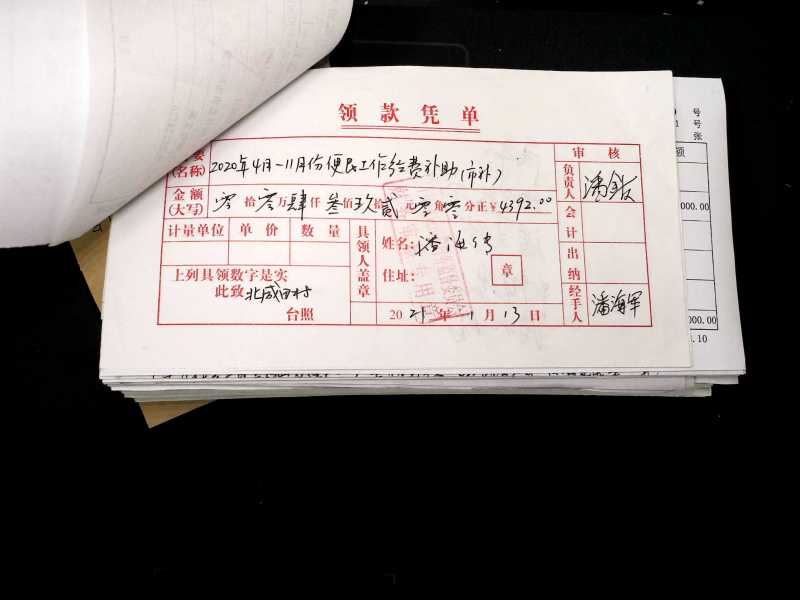 领款凭单
要 2020年4月-11月份便民工作经费补助(市补) 审核
(名称)
金额 零拾零万肆仟叁佰玖拾贰元零角零分正¥4392.00 负责人
(大写)
会计
计量单位 单价 数量 具领人盖章 姓名:潘海
出纳
上列具领数字是实 住址: 章
此致 北咸田村 经手人 潘海军
台照 2021年1月13日
号
号
张
额
000.00
000.00
.10